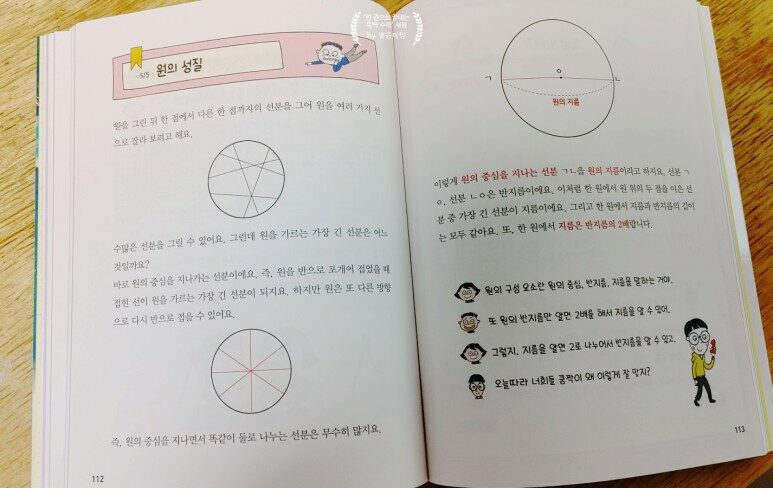 '한 권으로 끝내는
by 열공마밍
5/5 원의 성질
원을 그린 뒤 한 점에서 다른 한 점까지의 선분을 그어 원을 여러 가지 선
으로 잘라 보려고 해요.
수많은 선분을 그릴 수 있어요. 그런데 원을 가르는 가장 긴 선분은 어느
것일까요?
바로 원의 중심을 지나가는 선분이에요. 즉, 원을 반으로 포개어 접었을 때
접힌 선이 원을 가르는 가장 긴 선분이 되지요. 하지만 원은 또 다른 방향
으로 다시 반으로 접을 수 있어요.
즉, 원의 중심을 지나면서 똑같이 둘로 나누는 선분은 무수히 많지요.
112
ㄱ ㅇ ㄴ
원의 지름
이렇게 원의 중심을 지나는 선분 ㄱㄴ을 원의 지름이라고 하지요. 선분 ㄱ
ㅇ, 선분 ㄴㅇ은 반지름이에요. 이처럼 한 원에서 원 위의 두 점을 이은 선
분 중 가장 긴 선분이 지름이에요. 그리고 한 원에서 지름과 반지름의 길이
는 모두 같아요. 또, 한 원에서 지름은 반지름의 2배랍니다.
원의 구성 요소란 원의 중심, 반지름, 지름을 말하는 거야.
또 원의 반지름만 알면 2배를 해서 지름을 알 수 있어.
그렇지. 지름을 알면 2로 나누어서 반지름을 알 수 있고.
오늘따라 너희들 쿵짝이 왜 이렇게 잘 맞지?
113